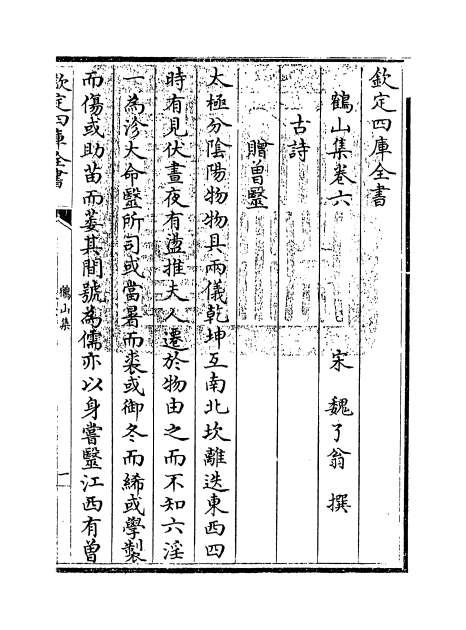 欽定四庫全書
鶴山集卷六
宋 魏了翁 撰
古詩
贈曽毉
太極分陰陽物物具兩儀乾坤互南北坎離迭東西四
時有見伏晝夜有盪推夫人遷於物由之而不知六淫
一為沴大命毉所司或當暑而裘或御冬而絺或學製
而傷或助苗而萎其間號為儒亦以身嘗毉江西有曽
欽定四庫全書
鶴山集
一